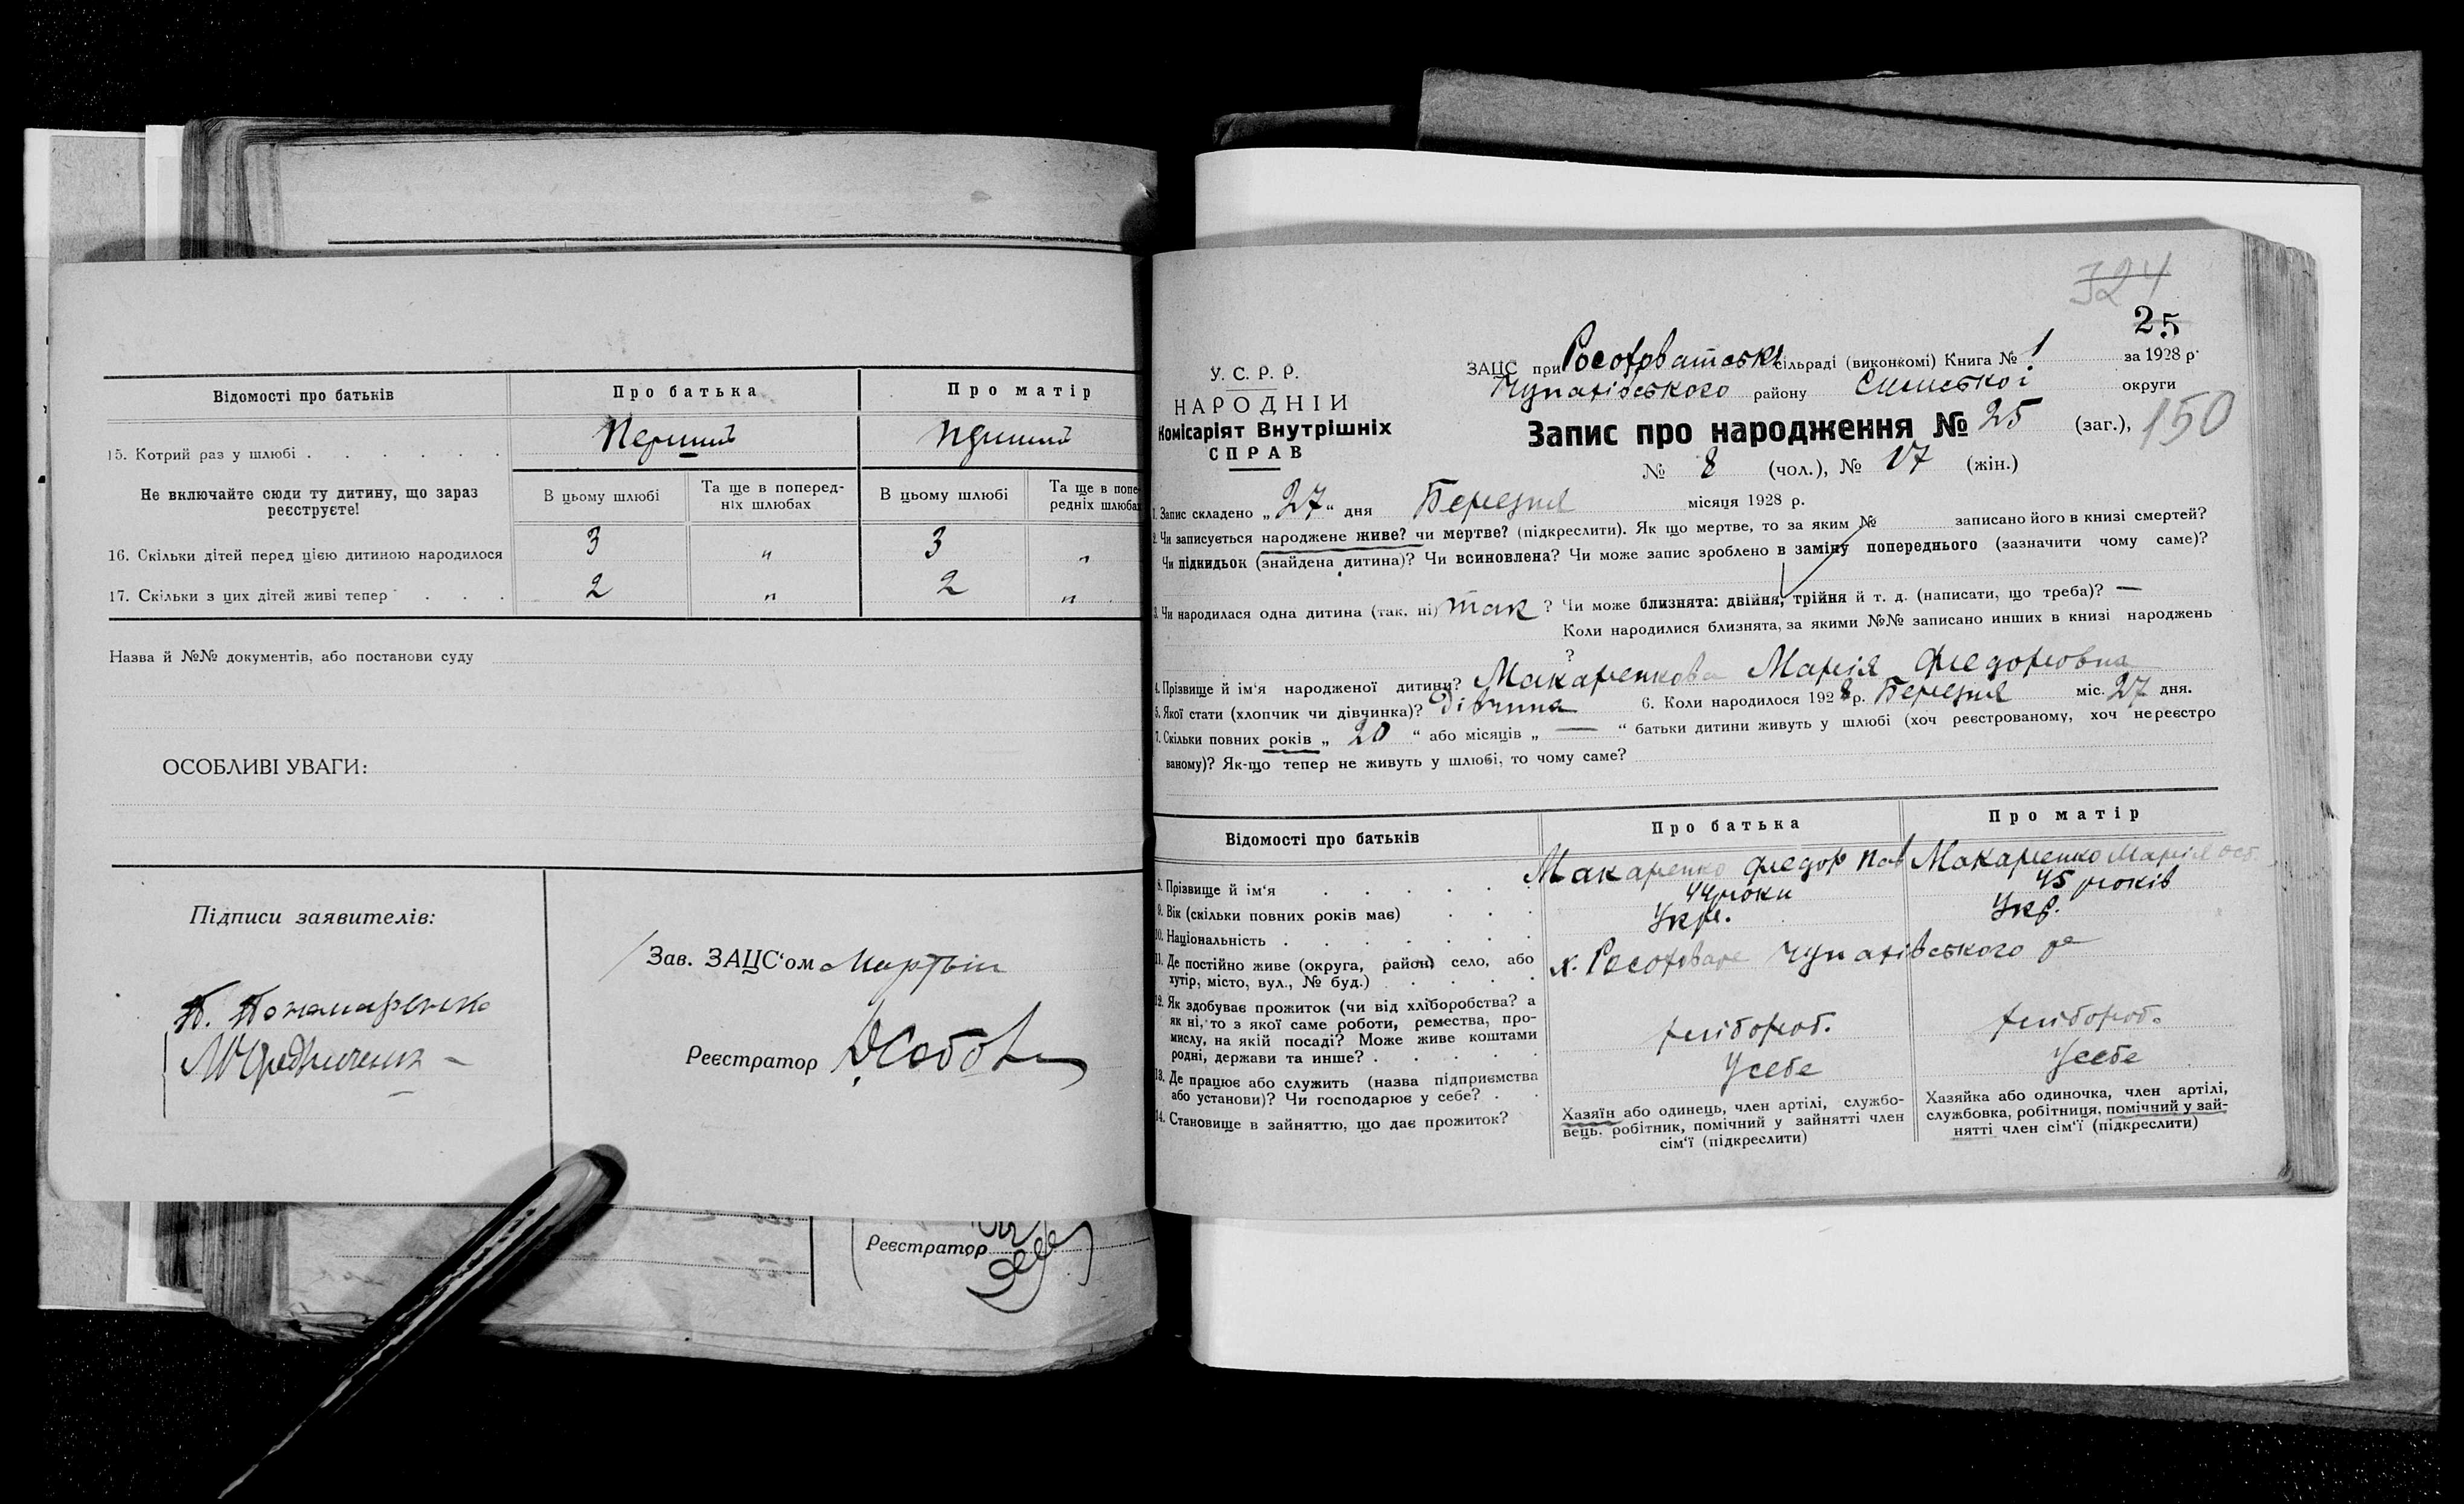 Відомості про батьків
Про батька
Про матір
15. Котрий раз у шлюбі . . . . . .
Перший
Перший
Не включайте сюди ту дитину, що зараз
реєструєте!
В цьому шлюбі
Та ще в поперед-
ніх шлюбах
В цьому шлюбі
Та ще в попе-
редніх шлюбах
16. Скільки дітей перед цією дитиною народилося
3 „ 3 „
17. Скільки з цих дітей живі тепер . . . .
2 „ 2 „
Назва й №№ документів, або постанови суду
ОСОБЛИВІ УВАГИ:
Підписи заявителів:
Зав. ЗАЦС'ом
Реєстратор
Реєстратор
324
25
У. С. Р. Р.
НАРОДНІЙ
Комісаріят Внутрішніх
СПРАВ
ЗАЦС при сільраді (виконкомі) Книга № 1 за 1928 р.
району Сумської округи
Запис про народження № 25 (заг.), 150
№ 8 (чол.), № 17 (жін.)
1. Запис складено „27" дня Березня місяця 1928 р.
2. Чи записується народжене живе? чи мертве? (підкреслити). Як що мертве, то за яким № записано його в книзі смертей?
Чи підкидьок (знайдена дитина)? Чи всиновлена? Чи може запис зроблено в заміну попереднього (зазначити чому саме)?
3. Чи народилася одна дитина (так, ні) так ? Чи може близнята: двійня, трійня й т. д. (написати, що треба)? —
Коли народилися близнята, за якими №№ записано инших в книзі народжень
?
4. Прізвище й ім'я народженої дитини? Макаренкова Марія Федоровна
5. Якої стати (хлопчик чи дівчинка)? Дівчина 6. Коли народилося 1928 р. Березня міс. 27 дня.
7. Скільки повних років „ 20 " або місяців „ — " батьки дитини живуть у шлюбі (хоч реєстрованому, хоч нереєстро
ваному)? Як-що тепер не живуть у шлюбі, то чому саме?
Відомості про батьків
Про батька
Про матір
8. Прізвище й ім'я . . . . .
Макаренко Федор Пав
Макаренко Марія
9. Вік (скільки повних років має) . . .
44 роки
45 років
10. Національність . . . . . . .
Укр.
Укр.
11. Де постійно живе (округа, район) село, або
хутір, місто, вул., № буд.)
х.
12. Як здобуває прожиток (чи від хліборобства? а
як ні, то з якої саме роботи, ремества, про-
мислу, на якій посаді? Може живе коштами
родні, держави та инше? . . . . .
хлібороб.
хлібороб.
13. Де працює або служить (назва підприємства
або установи)? Чи господарює у себе? . .
У себе
У себе
14. Становище в зайняттю, що дає прожиток?
Хазяїн або одинець, член артілі, службо-
вець. робітник, помічний у зайнятті член
сім'ї (підкреслити)
Хазяйка або одиночка, член артілі,
службовка, робітниця, помічний у зай-
нятті член сім'ї (підкреслити)